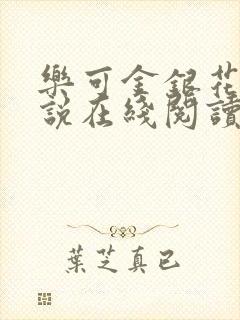 樂可金銀花
說在綫閱讀
葉芝真已